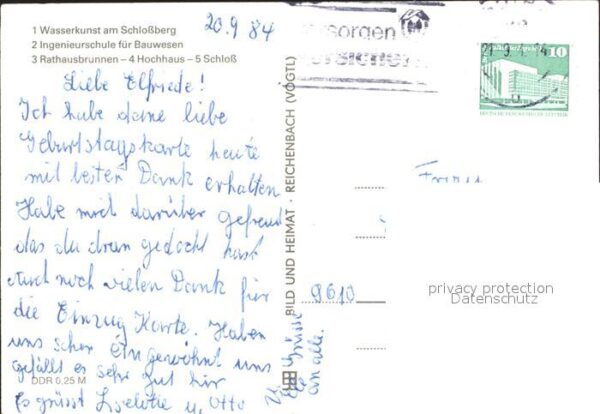 1 Wasserkunst am Schloßberg
2 Ingenieurschule für Bauwesen
3 Rathausbrunnen – 4 Hochhaus – 5 Schloß
20.9 84
Liebe Elfriede!
Ich habe deine liebe
Geburtstagskarte heute
mit besten Dank erhalten
Habe mich darüber gefreut
das du dran gedacht hast
Auch noch vielen Dank für
die Einzug Karte. Haben
uns schon Eingewöhnt uns
gefällt es sehr gut hir
Es grüsst Liselotte u. Otto
Grüsse
an alle.
DDR 0,25 M
BILD UND HEIMAT · REICHENBACH (VOGTL)
sorgen
10
9610
privacy protection
Datenschutz